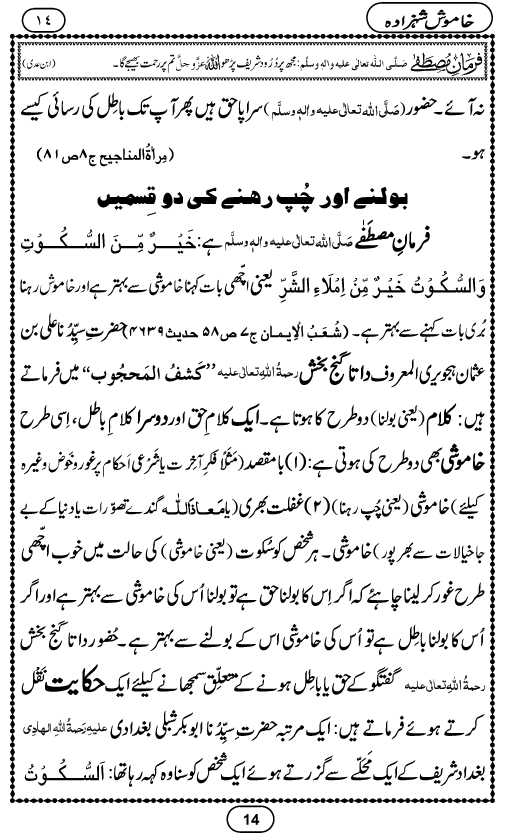 خاموش شہزادہ
١٤
فرمانِ مصطفٰے صلَّی اللہ تعالٰی علیہ واٰلہٖ وسلَّم: مجھ پر دُرُود شریف پڑھو اللہ عَزَّوَجَلَّ تم پر رحمت بھیجے گا۔ (ابن عدی)
نہ آئے۔ حضور (صَلَّی اللہ تعالٰی علیہ واٰلہٖ وسلَّم) سراپا حق ہیں پھر آپ تک باطِل کی رسائی کیسے
ہو۔ (مِراٰۃُ المناجیح ج٨ ص ٨١)
بولنے اور چُپ رھنے کی دو قِسمیں
فرمانِ مصطَفٰے صَلَّی اللہ تعالٰی علیہ واٰلہٖ وسلَّم ہے: خَیْرٌ مِّنَ السُّکُوْتِ
وَالسُّکُوْتُ خَیْرٌ مِّنْ اِمْلَاءِ الشَّرِّ یعنی اچّھی بات کہنا خاموشی سے بہتر ہے اور خاموش رہنا
بُری بات کہنے سے بہتر ہے۔ (شُعَبُ الْاِیمان ج٧ ص ٥٨ حدیث ٤٦٣٩) حضرتِ سیِّدُنا علی بن
عثمان ہجویری المعروف داتا گنج بخش رحمۃُ اللہِ تعالٰی علیہ ’’کَشفُ الْمَحجُوب‘‘ میں فرماتے
ہیں: کلام (یعنی بولنا) دو طرح کا ہوتا ہے۔ ایک کلامِ حق اور دوسرا کلامِ باطِل، اِسی طرح
خاموشی بھی دو طرح کی ہوتی ہے: (۱) با مقصد (مَثَلاً فکرِ آخِرت یا شَرْعی احکام پر غور و خَوض وغیرہ
کیلئے) خاموشی (یعنی چُپ رہنا) (۲) غفلت بھری (یا مَعاذَ اللہ گندے تصوّرات یا دنیا کے بے
جا خیالات سے بھر پور) خاموشی۔ ہر شخص کو سُکوت (یعنی خاموشی) کی حالت میں خوب اچّھی
طرح غور کر لینا چاہئے کہ اگر اِس کا بولنا حق ہے تو بولنا اُس کی خاموشی سے بہتر ہے اور اگر
اُس کا بولنا باطِل ہے تو اُس کی خاموشی اس کے بولنے سے بہتر ہے۔ حُضور داتا گنج بخش
رحمۃُ اللہِ تعالٰی علیہ گفتگو کے حق یا باطِل ہونے کے متعلِّق سمجھانے کیلئے ایک حکایت نَقْل
کرتے ہوئے فرماتے ہیں: ایک مرتبہ حضرتِ سیِّدُنا ابوبکر شبلی بغدادی علیہ رَحمۃُ اللہِ الہادِی
بغداد شریف کے ایک مَحَلّے سے گزرتے ہوئے ایک شخص کو سنا وہ کہہ رہا تھا: اَلسُّکُوْتُ
14